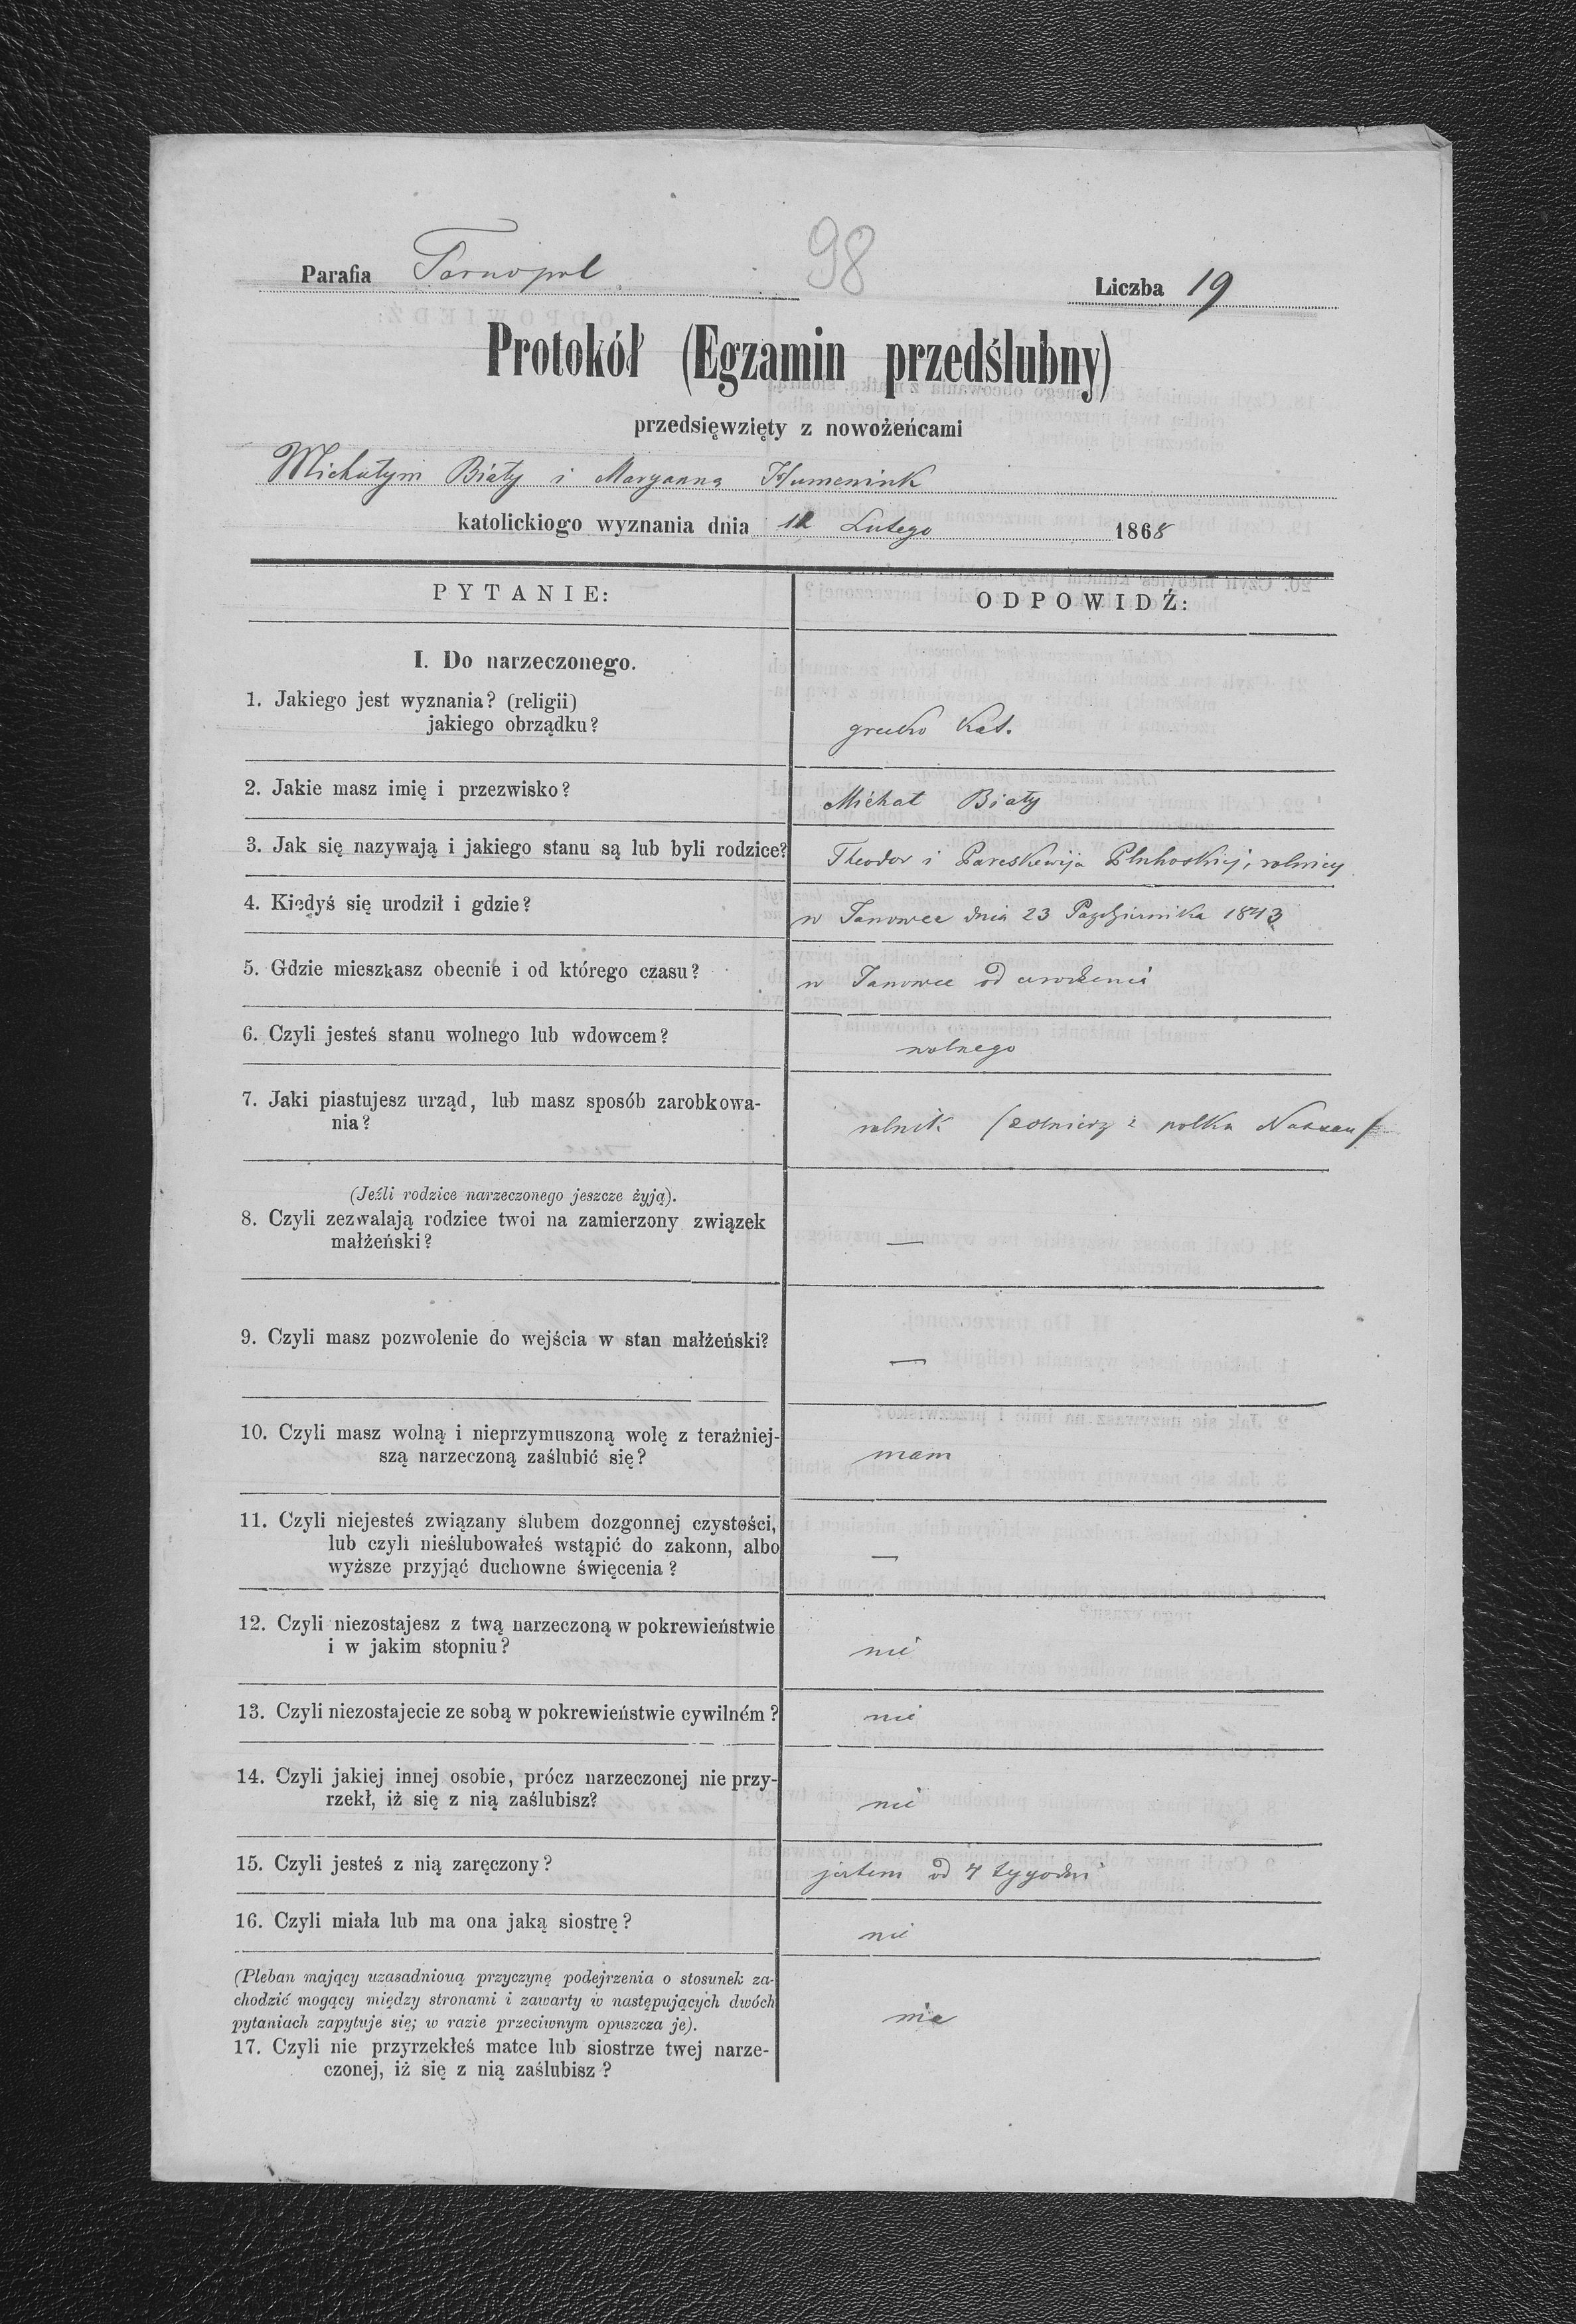 98
Parafia Tarnopol
Liczba 19
Protokół (Egzamin przedślubny)
przedsięwzięty z nowożeńcami
Michałym Biały i Maryanna Humeniuk
katolickiogo wyznania dnia 12 Lutego 1868
PYTANIE:
ODPOWIDŹ:
I. Do narzeczonego.
1. Jakiego jest wyznania? (religii)
jakiego obrządku?
grecko Kat.
2. Jakie masz imię i przezwisko?
Michał Biały
3. Jak się nazywają i jakiego stanu są lub byli rodzice?
Theodor i Pareskewija rolnicy
4. Kiedyś się urodził i gdzie?
w Janowce dnia 23 Października 1843
5. Gdzie mieszkasz obecnie i od którego czasu?
w Janowce od urodzenia
6. Czyli jesteś stanu wolnego lub wdowcem?
wolnego
7. Jaki piastujesz urząd, lub masz sposób zarobkowa-
nia?
rolnik (zolnierz z polku Nassau)
(Jeźli rodzice narzeczonego jeszcze żyją).
8. Czyli zezwalają rodzice twoi na zamierzony związek
małżeński?
—
9. Czyli masz pozwolenie do wejścia w stan małżeński?
—
10. Czyli masz wolną i nieprzymuszoną wolę z teraźniej-
szą narzeczoną zaślubić się?
mam
11. Czyli niejesteś związany ślubem dozgonnej czystości,
lub czyli nieślubowałeś wstąpić do zakonn, albo
wyższe przyjąć duchowne święcenia?
—
12. Czyli niezostajesz z twą narzeczoną w pokrewieństwie
i w jakim stopniu?
nie
13. Czyli niezostajecie ze sobą w pokrewieństwie cywilném?
nie
14. Czyli jakiej innej osobie, prócz narzeczonej nie przy-
rzekł, iż się z nią zaślubisz?
nie
15. Czyli jesteś z nią zaręczony?
jestem od 4 tygodni
16. Czyli miała lub ma ona jaką siostrę?
nie
(Pleban mający uzasadniouą przyczynę podejrzenia o stosunek za-
chodzić mogący między stronami i zawarty w następujących dwóch
pytaniach zapytuje się; w razie przeciwnym opuszcza je).
17. Czyli nie przyrzekłeś matce lub siostrze twej narze-
czonej, iż się z nią zaślubisz?
nie